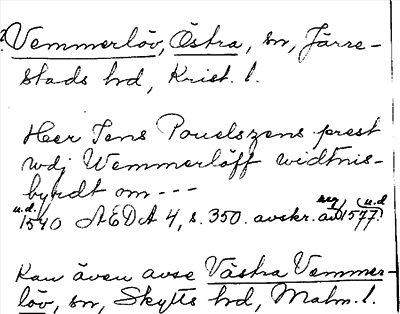 Vemmerlöv, Östra, sn, Järre-
stads hd, Krist. l.
Herr Jens Pouelszens prest
wdj Wemmerlöff widtnis-
byrdt om ---
u.d. 1540 AEDA 4, s. 350. avskr. av reg 1577. (u.d
Kan även avse Västra Vemmer-
löv, sn, Skytts hd, Malm. l.